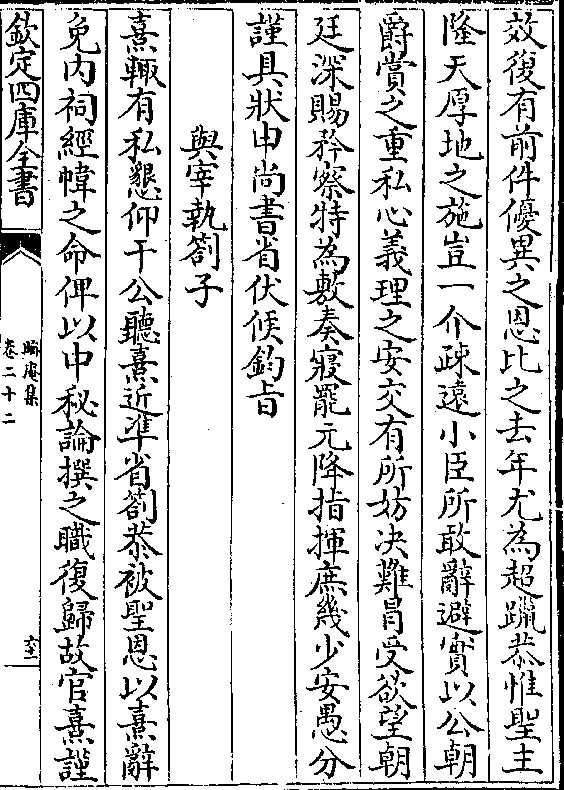 效復有前件優異之恩比之去年尤為超躐恭惟聖主
隆天厚地之施豈一介疎逺小臣所敢辭避實以公朝
爵賞之重私心義理之安交有所妨決難冒受欲望朝
廷深賜矜察特為敷奏寢罷元降指揮庶幾少安愚分
謹具狀申尚書省伏候鈞旨
與宰執劄子
熹輙有私懇仰干公聽熹近準省劄恭被聖恩以熹辭
免内祠經幃之命俾以中秘論撰之職復歸故官熹謹
欽定四庫全書
晦庵集
卷二十二